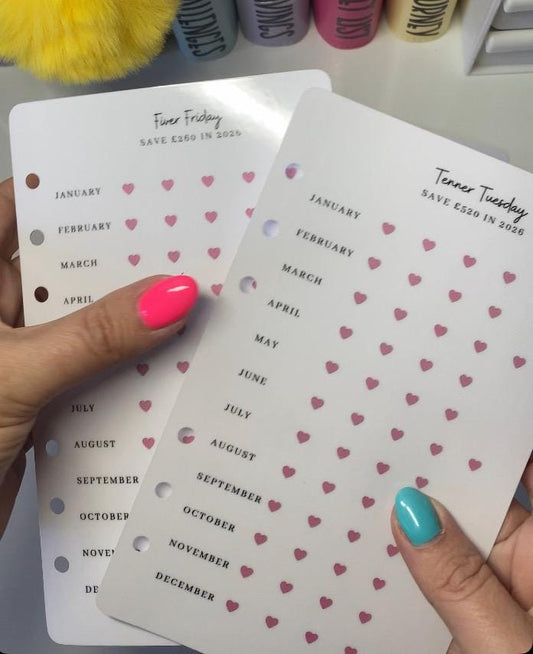 SAVINGS
Fiver Friday
SAVE £260 IN 2026
JANUARY
FEBRUARY
MARCH
APRIL
JULY
AUGUST
SEPTEMBER
OCTOBER
Tenner Tuesday
SAVE £520 IN 2026
JANUARY
FEBRUARY
MARCH
APRIL
MAY
JUNE
JULY
AUGUST
SEPTEMBER
OCTOBER
NOVEMBER
DECEMBER